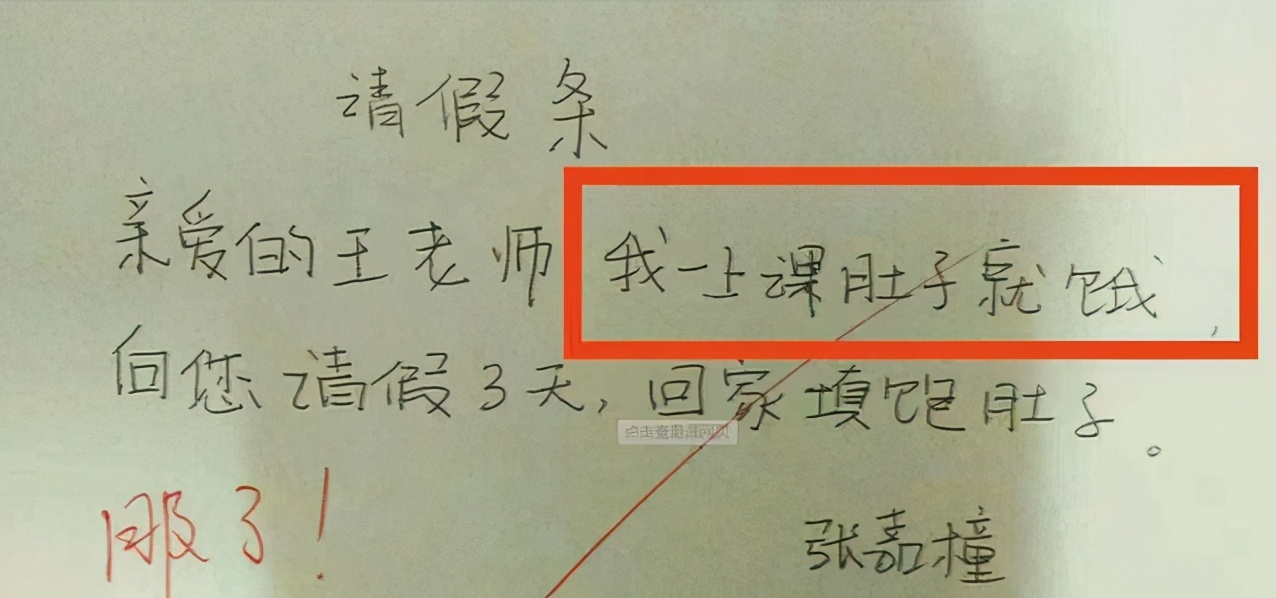 请假条
亲爱的王老师 我一上课肚子就饿,
向您请假3天,回家填饱肚子。
服了!
张嘉橦